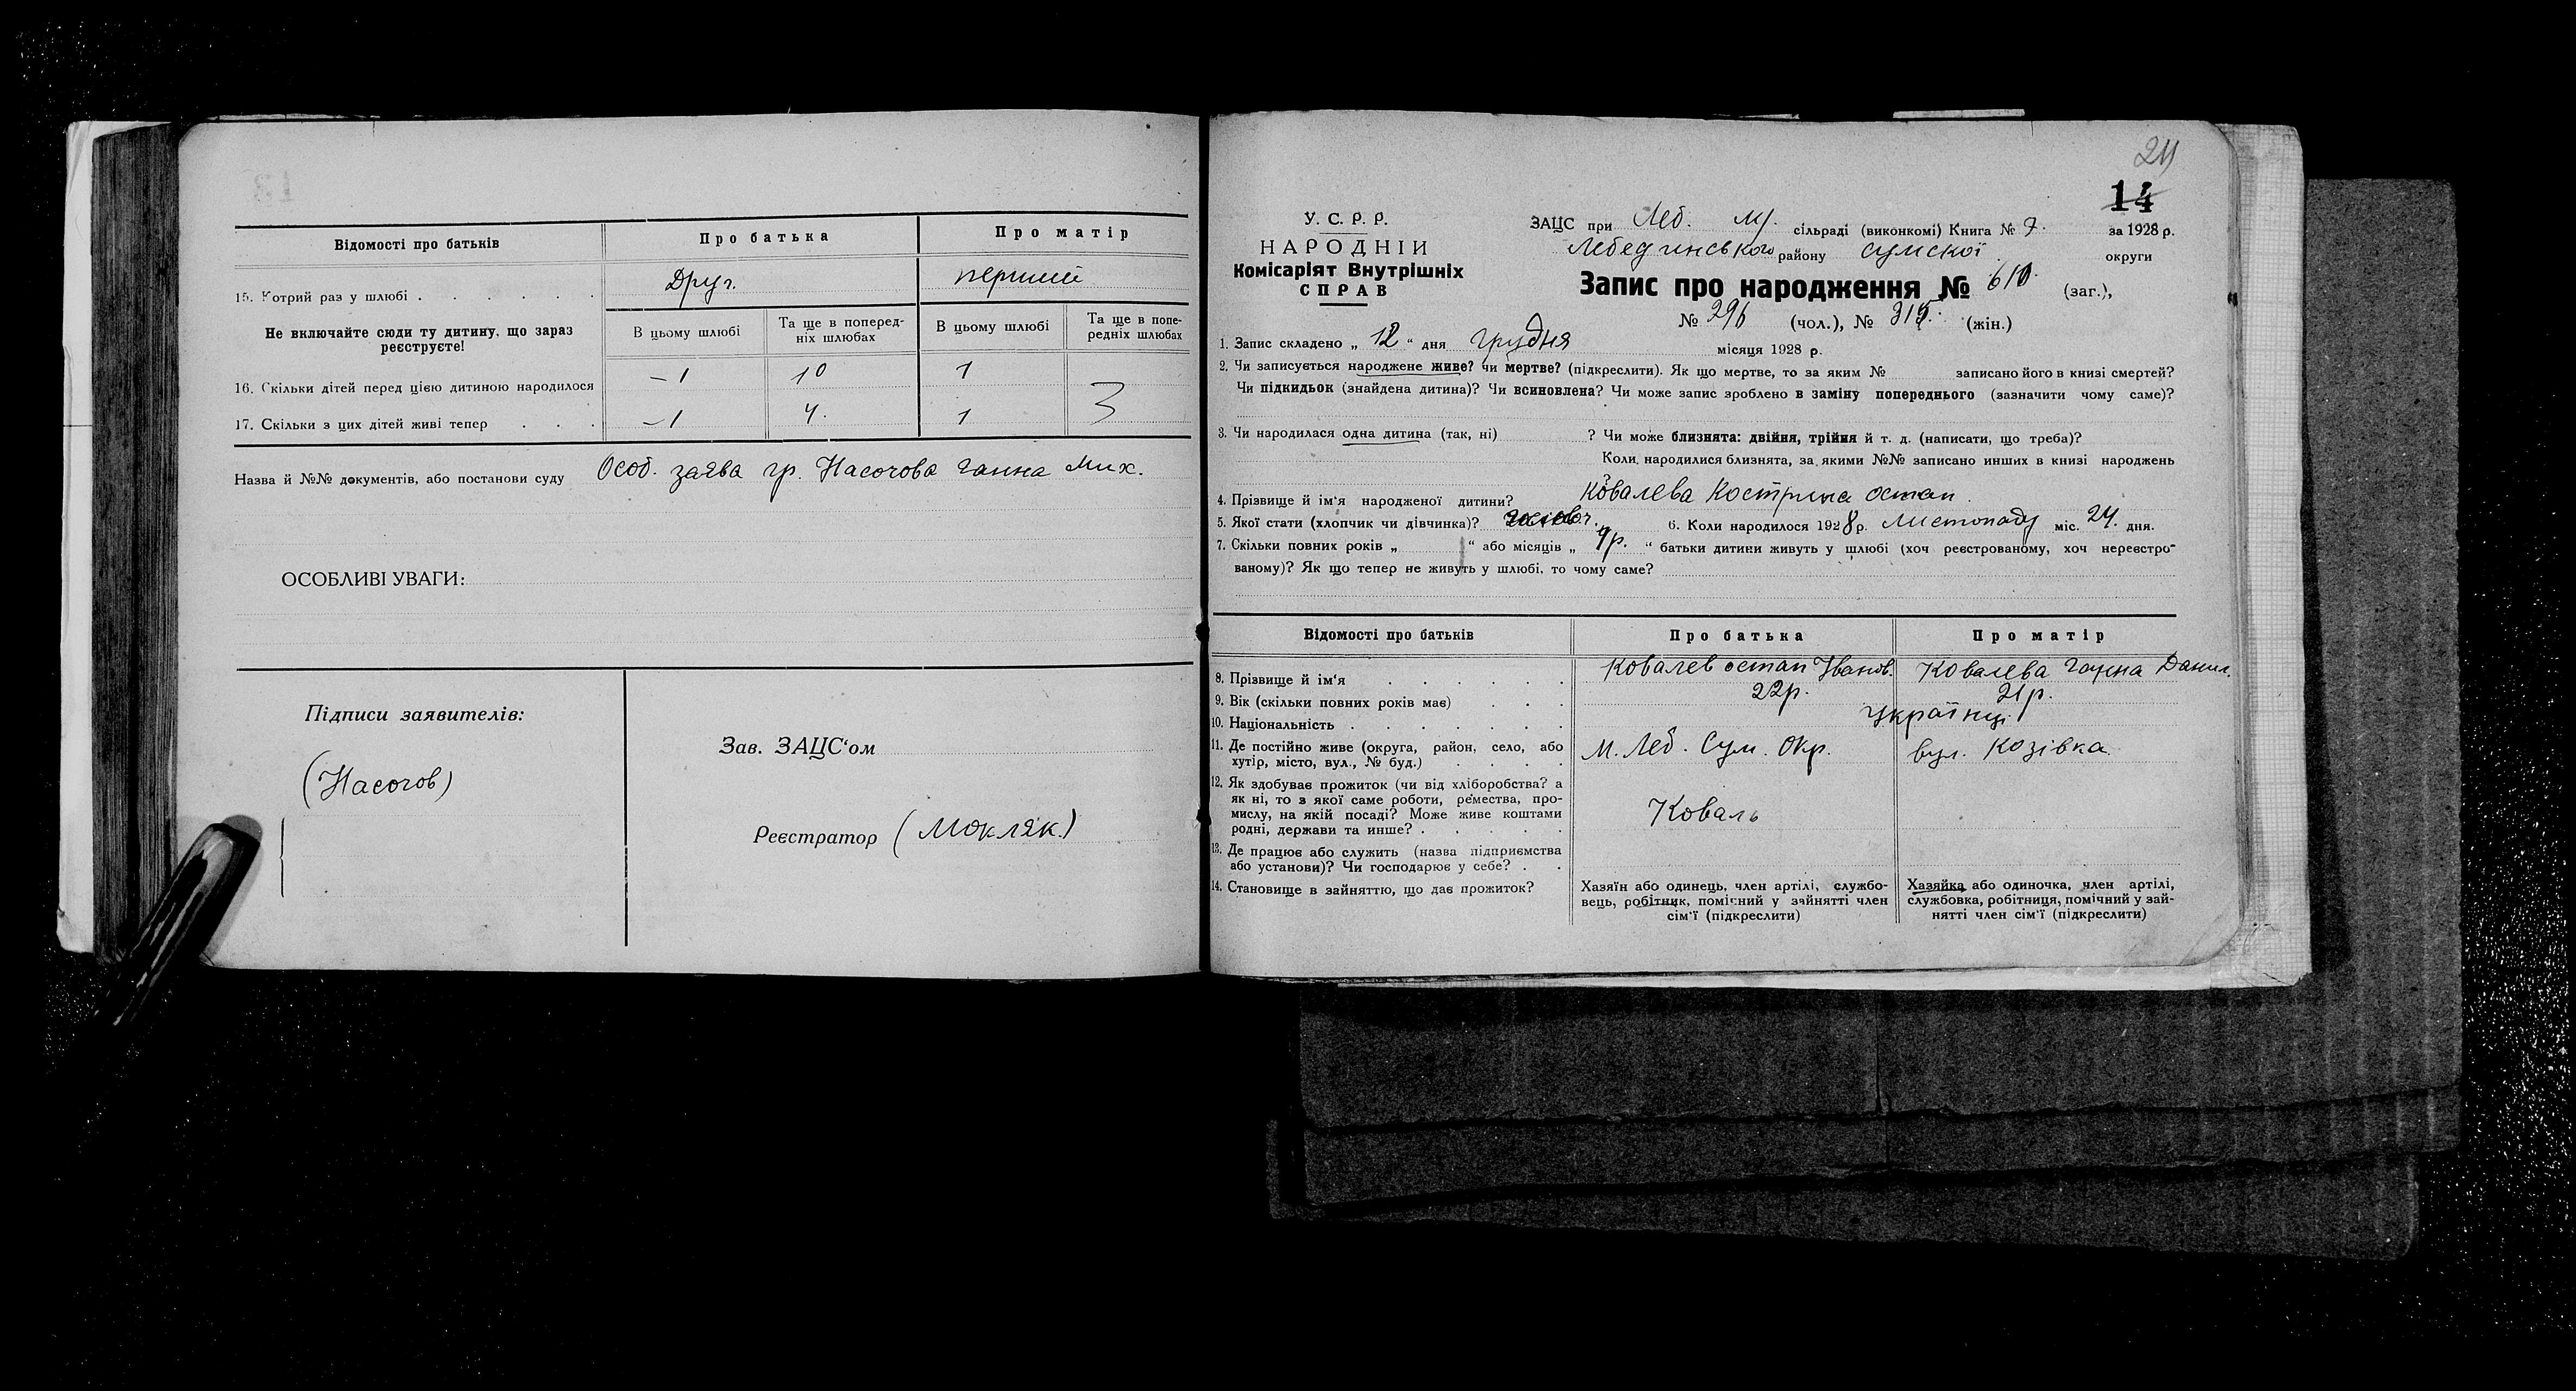 Відомості про батьків
Про батька
Про матір
15. Котрий раз у шлюбі
Друг.
перший
Не включайте сюди ту дитину, що зараз
реєструєте!
В цьому шлюбі
Та ще в поперед-
ніх шлюбах
В цьому шлюбі
Та ще в попе-
редніх шлюбах
16. Скільки дітей перед цією дитиною народилося
– 1
10
1
17. Скільки з цих дітей живі тепер
– 1
4.
1
Назва й №№ документів, або постанови суду Особ. заява гр. Насочова Ганна Мих.
ОСОБЛИВІ УВАГИ:
Підписи заявителів:
(Насочов)
Зав. ЗАЦС‘ом
Реєстратор (Мокляк.)
14
У. С. Р. Р.
НАРОДНІЙ
Комісаріят Внутрішніх
СПРАВ
ЗАЦС при Леб. М/. сільраді (виконкомі) Книга № 7. за 1928 р.
Лебединського району Сумскої округи
Запис про народження № 610. (заг.),
№ 296 (чол.), № 315. (жін.)
1. Запис складено „ 12 “ дня Грудня місяця 1928 р.
2. Чи записується народжене живе? чи мертве? (підкреслити). Як що мертве, то за яким № записано його в книзі смертей?
Чи підкидьок (знайдена дитина)? Чи всиновлена? Чи може запис зроблено в заміну попереднього (зазначити чому саме)?
3. Чи народилася одна дитина (так, ні) ? Чи може близнята: двійня, трійня й т. д. (написати, що треба)?
Коли народилися близнята, за якими №№ записано инших в книзі народжень
4. Прізвище й ім‘я народженої дитини? Ковалева остап.
5. Якої стати (хлопчик чи дівчинка)?
6. Коли народилося 1928 р. Листопаду міс. 24. дня.
7. Скільки повних років „ “ або місяців „ 4р. “ батьки дитини живуть у шлюбі (хоч реєстрованому, хоч нереєстро-
ваному)? Як що тепер не живуть у шлюбі, то чому саме?
Відомості про батьків
Про батька
Про матір
8. Прізвище й ім‘я
Ковалев остап Іванов.
Ковалева Ганна Данил.
9. Вік (скільки повних років має)
22р.
21р.
10. Національність
Українці
11. Де постійно живе (округа, район, село, або
хутір, місто, вул., № буд.)
М. Леб. Сум. Окр.
вул. Козівка
12. Як здобуває прожиток (чи від хліборобства? а
як ні, то з якої саме роботи, ремества, про-
мислу, на якій посаді? Може живе коштами
родні, держави та инше?
Коваль
13. Де працює або служить (назва підприємства
або установи)? Чи господарює у себе?
14. Становище в зайняттю, що дає прожиток?
Хазяїн або одинець, член артілі, службо-
вець, робітник, помічний у зайнятті член
сім‘ї (підкреслити)
Хазяйка або одиночка, член артілі,
службовка, робітниця, помічний у зай-
нятті член сім‘ї (підкреслити)